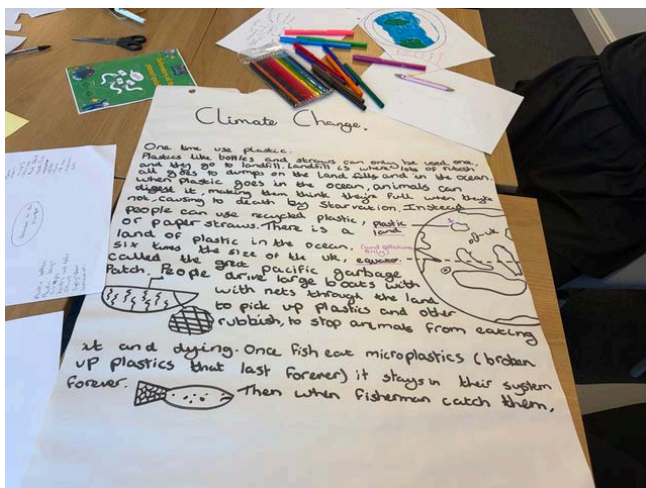 Climate Change.
One time use plastic.
Plastics like bottles and straws can only be used once,
and they go to landfill. Landfill is where lots of rubbish
all goes to dumps on the land fills and in the ocean.
when plastic goes in the ocean, animals can
digest it, making them think they're full when they're
not, causing to death by starvation. Instead
people can use recycled plastic,
or paper straws. There is a
land of plastic in the ocean,
six times the size of the uk,
called the great pacific garbage
Patch. People drive large boats with
with nets through the land
to pick up plastics and other
rubbish, to stop animals from eating
it and dying. Once fish eat microplastics (broken
up plastics that last forever) it stays in their system
forever.
Then when fisherman catch them,
plastic
land
uk
equator